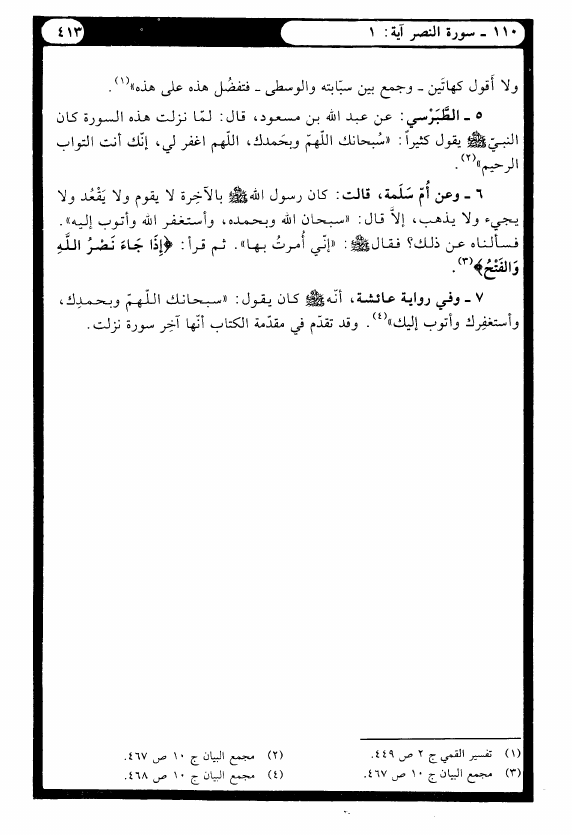 ١١٠ ـ سورة النصر آية: ١
٤١٣
ولا أقول كهاتَين ـ وجمع بين سبّابته والوسطى ـ فتفضُل هذه على هذه»(١).
٥ ـ الطَّبَرْسي: عن عبد الله بن مسعود، قال: لمّا نزلت هذه السورة كان
النبيّ ﷺ يقول كثيراً: «سُبحانك اللهمّ وبحَمدك، اللهم اغفر لي، إنّك أنت التواب
الرحيم»(٢).
٦ ـ وعن أُمّ سَلَمة، قالت: كان رسول الله ﷺ بالآخِرة لا يقوم ولا يَقْعُد ولا
يجيء ولا يذهب، إلاَّ قال: «سبحان الله وبحمده، وأستغفر الله وأتوب إليه».
فسألناه عن ذلك؟ فقال ﷺ: «إنّي أُمرتُ بها». ثم قرأ: ﴿إِذَا جَاءَ نَصْرُ اللَّهِ
وَالفَتْحُ﴾(٣).
٧ ـ وفي رواية عائشة، أنّه ﷺ كان يقول: «سبحانك اللهمّ وبحمدِك،
وأستغفِرك وأتوب إليك»(٤). وقد تقدّم في مقدّمة الكتاب أنّها آخِر سورة نزلت.
(١) تفسير القمي ج ٢ ص ٤٤٩.
(٢) مجمع البيان ج ١٠ ص ٤٦٧.
(٣) مجمع البيان ج ١٠ ص ٤٦٧.
(٤) مجمع البيان ج ١٠ ص ٤٦٨.